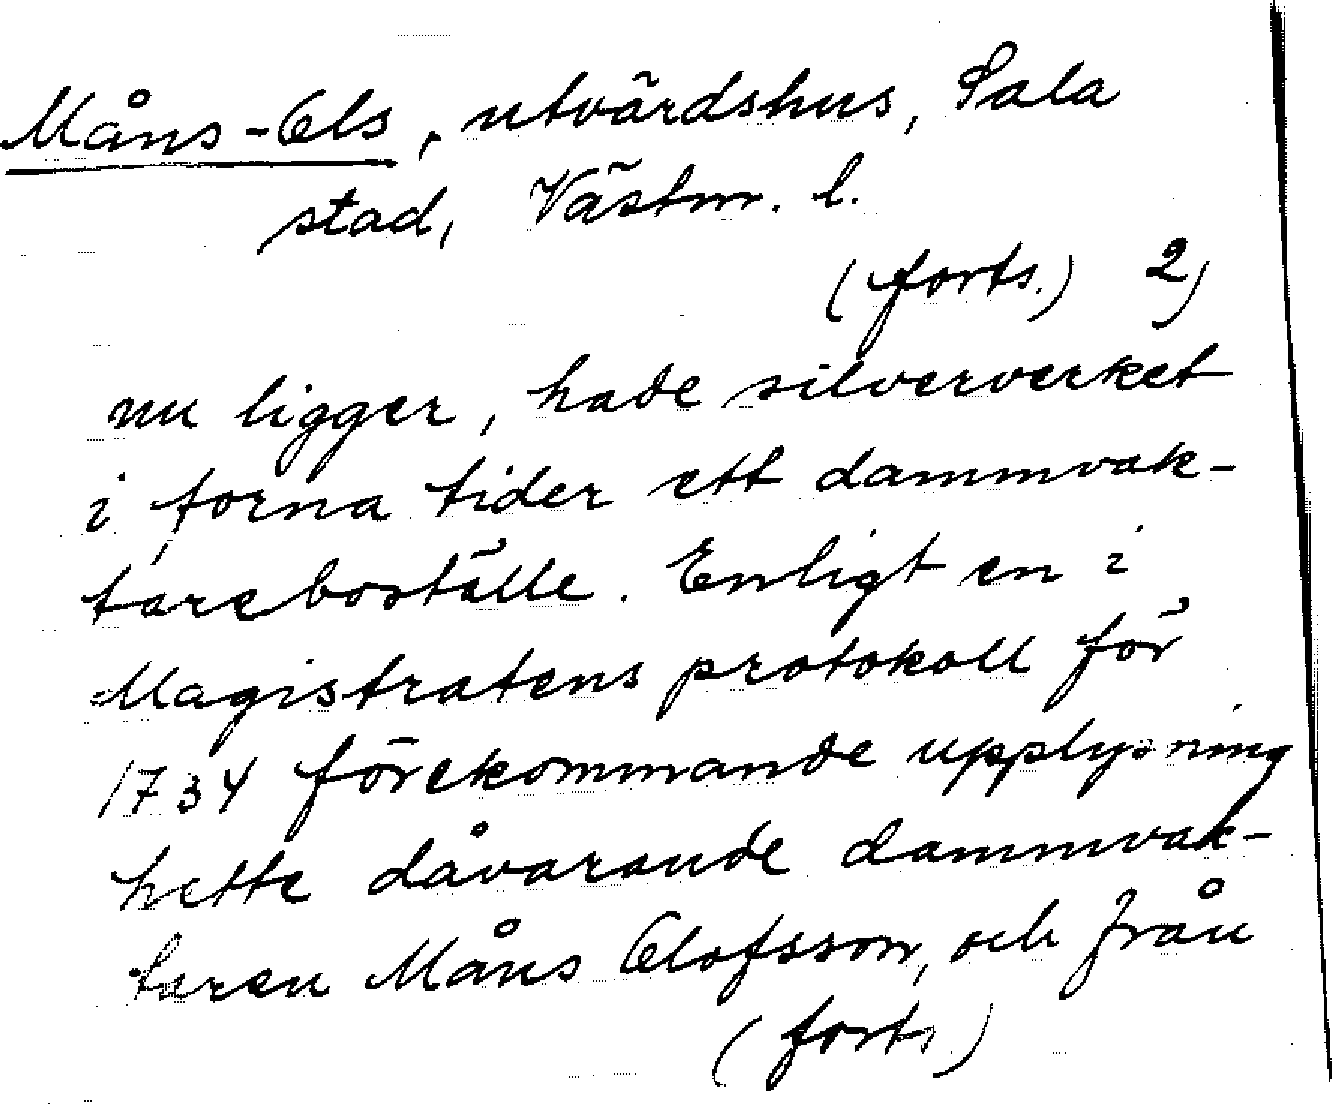 Måns-Ols, utvärdshus, Sala
stad, Västm. l.
(forts.) 2)
nu ligger, hade silververket
i forna tider ett dammvak-
tareboställe. Enligt en i
Magistratens protokoll för
1734 förekommande upplysning
hette dåvarande dammvak-
taren Måns Olofsson, och från
(forts.)